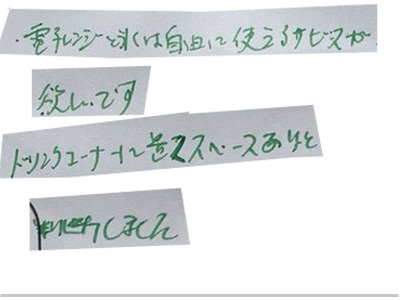 ・電子レンジと氷は自由に使えるサービスが
欲しいです
ドリンクコーナーに置くスペースあると
しました